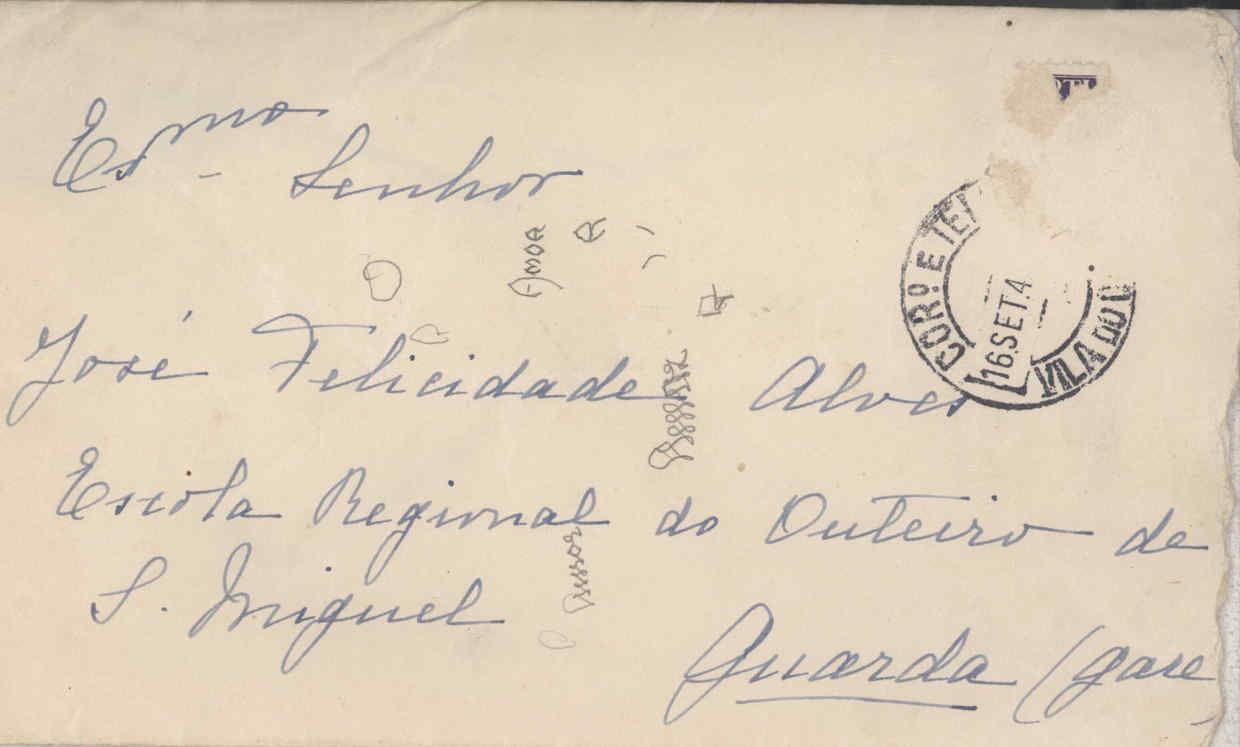 Exmo Senhor
José Felicidade Alves
Escola Regional do Outeiro de
S. Miguel
Guarda (gare
CORº E TEL
16.SET.4
VILA DO
Amor
A